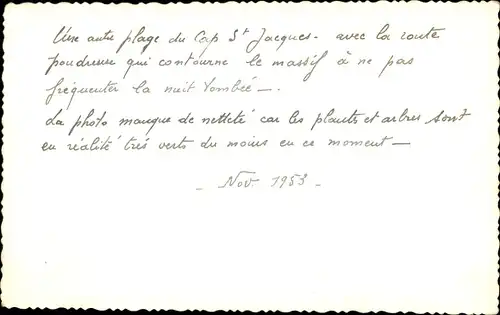 Une autre plage du Cap St Jacques - avec la route
poudreuse qui contourne le massif à ne pas
fréquenter la nuit tombée -.
La photo manque de netteté car les plants et arbres sont
en réalité très verts du moins en ce moment -
- Nov. 1953 -